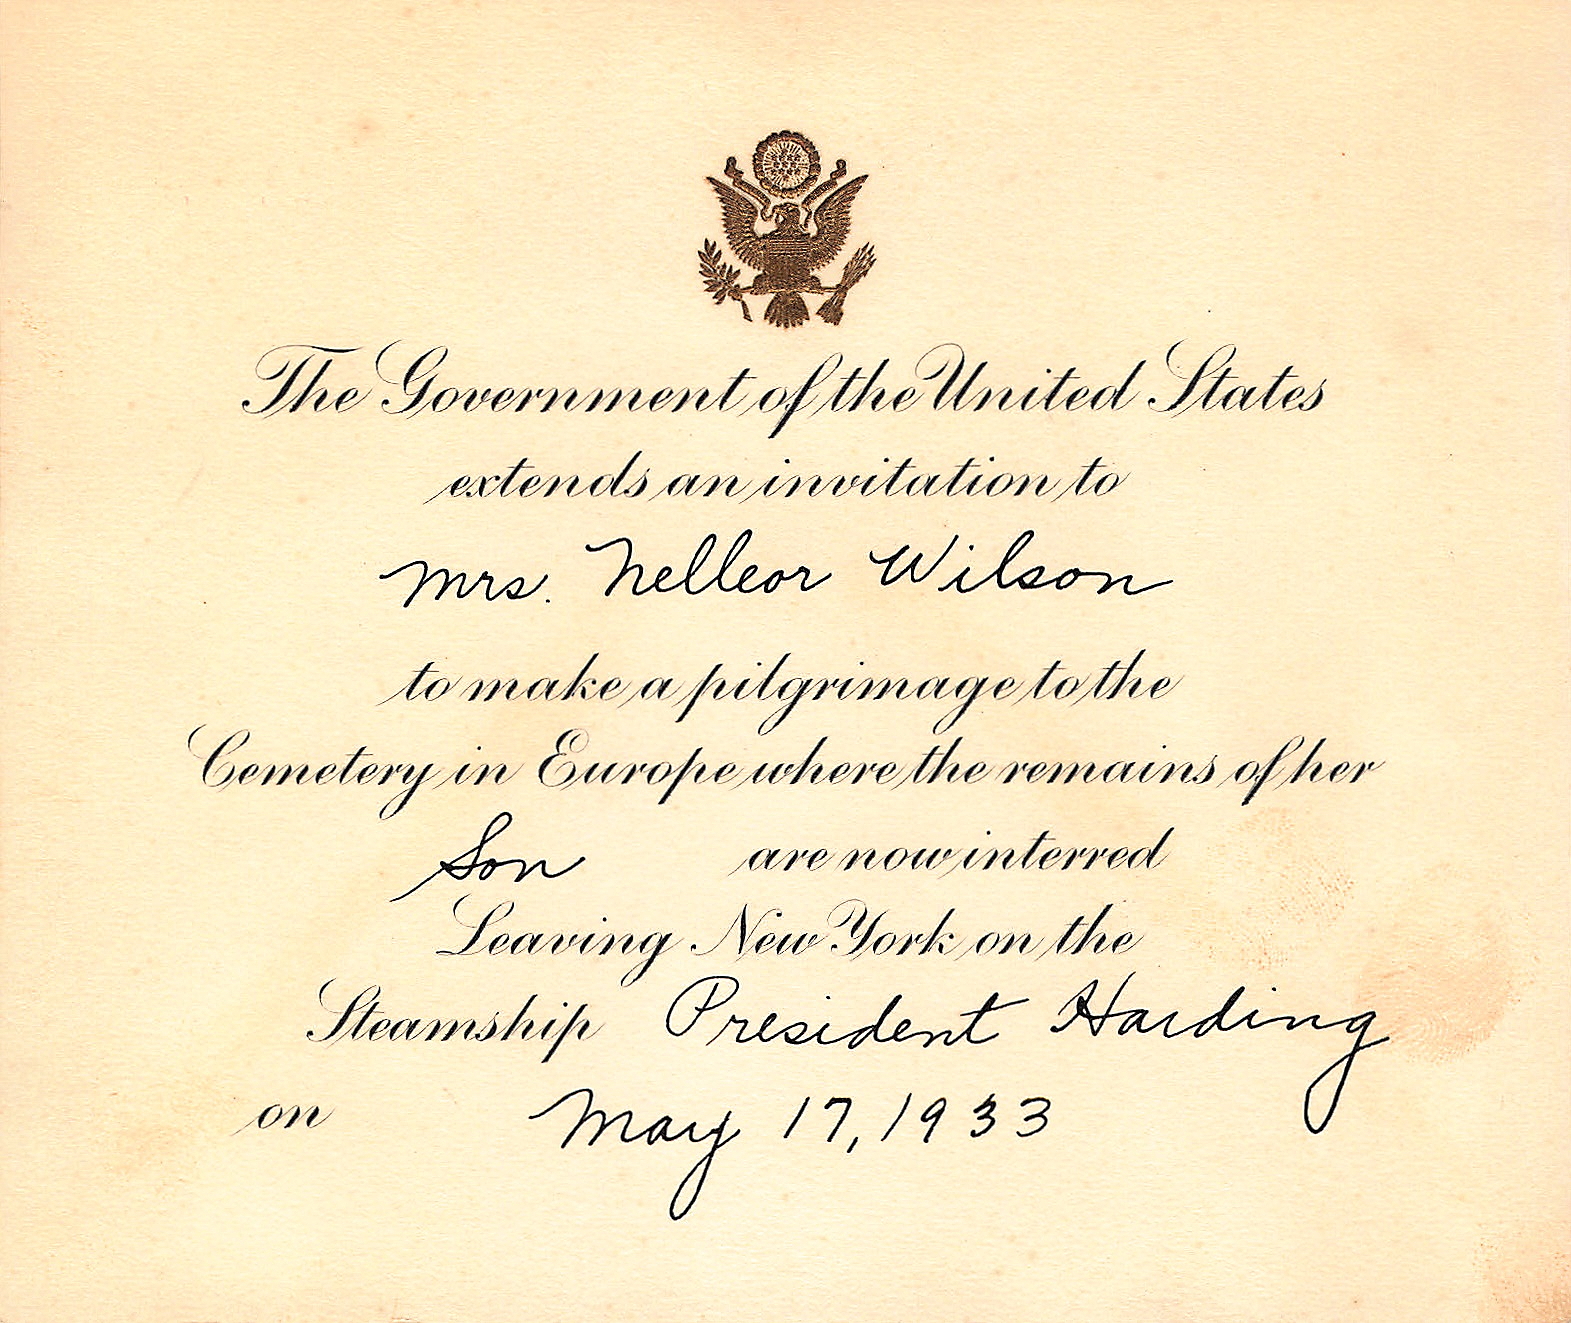 The Government of the United States
extends an invitation to
Mrs. Nelleor Wilson
to make a pilgrimage to the
Cemetery in Europe where the remains of her
Son are now interred
Leaving New York on the
Steamship President Harding
on May 17, 1933